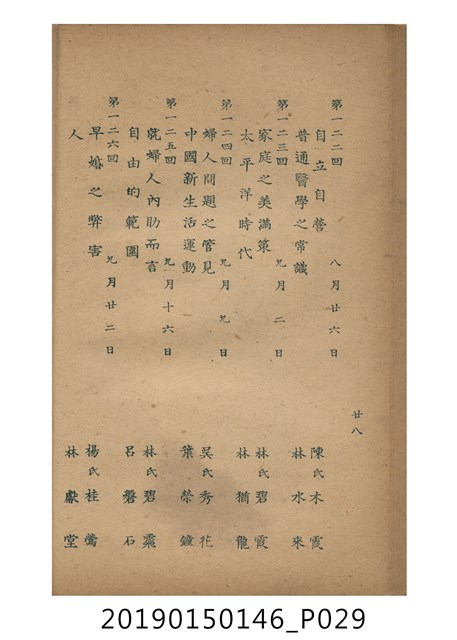 廿八
第一二二回 八月廿六日
自立自營 陳氏木霞
普通醫學之常識 林水來
第一二三回 九月二日
家庭之美滿策 林氏碧霞
太平洋時代 林猶龍
第一二四回 九月九日
婦人問題之管見 吳氏秀花
中國新生活運動 葉榮鐘
第一二五回 九月十六日
就婦人內助而言 林氏碧霙
自由的範圍 呂磐石
第一二六回 九月廿二日
早婚之弊害 楊氏桂鶯
人 林獻堂
20190150146_P029